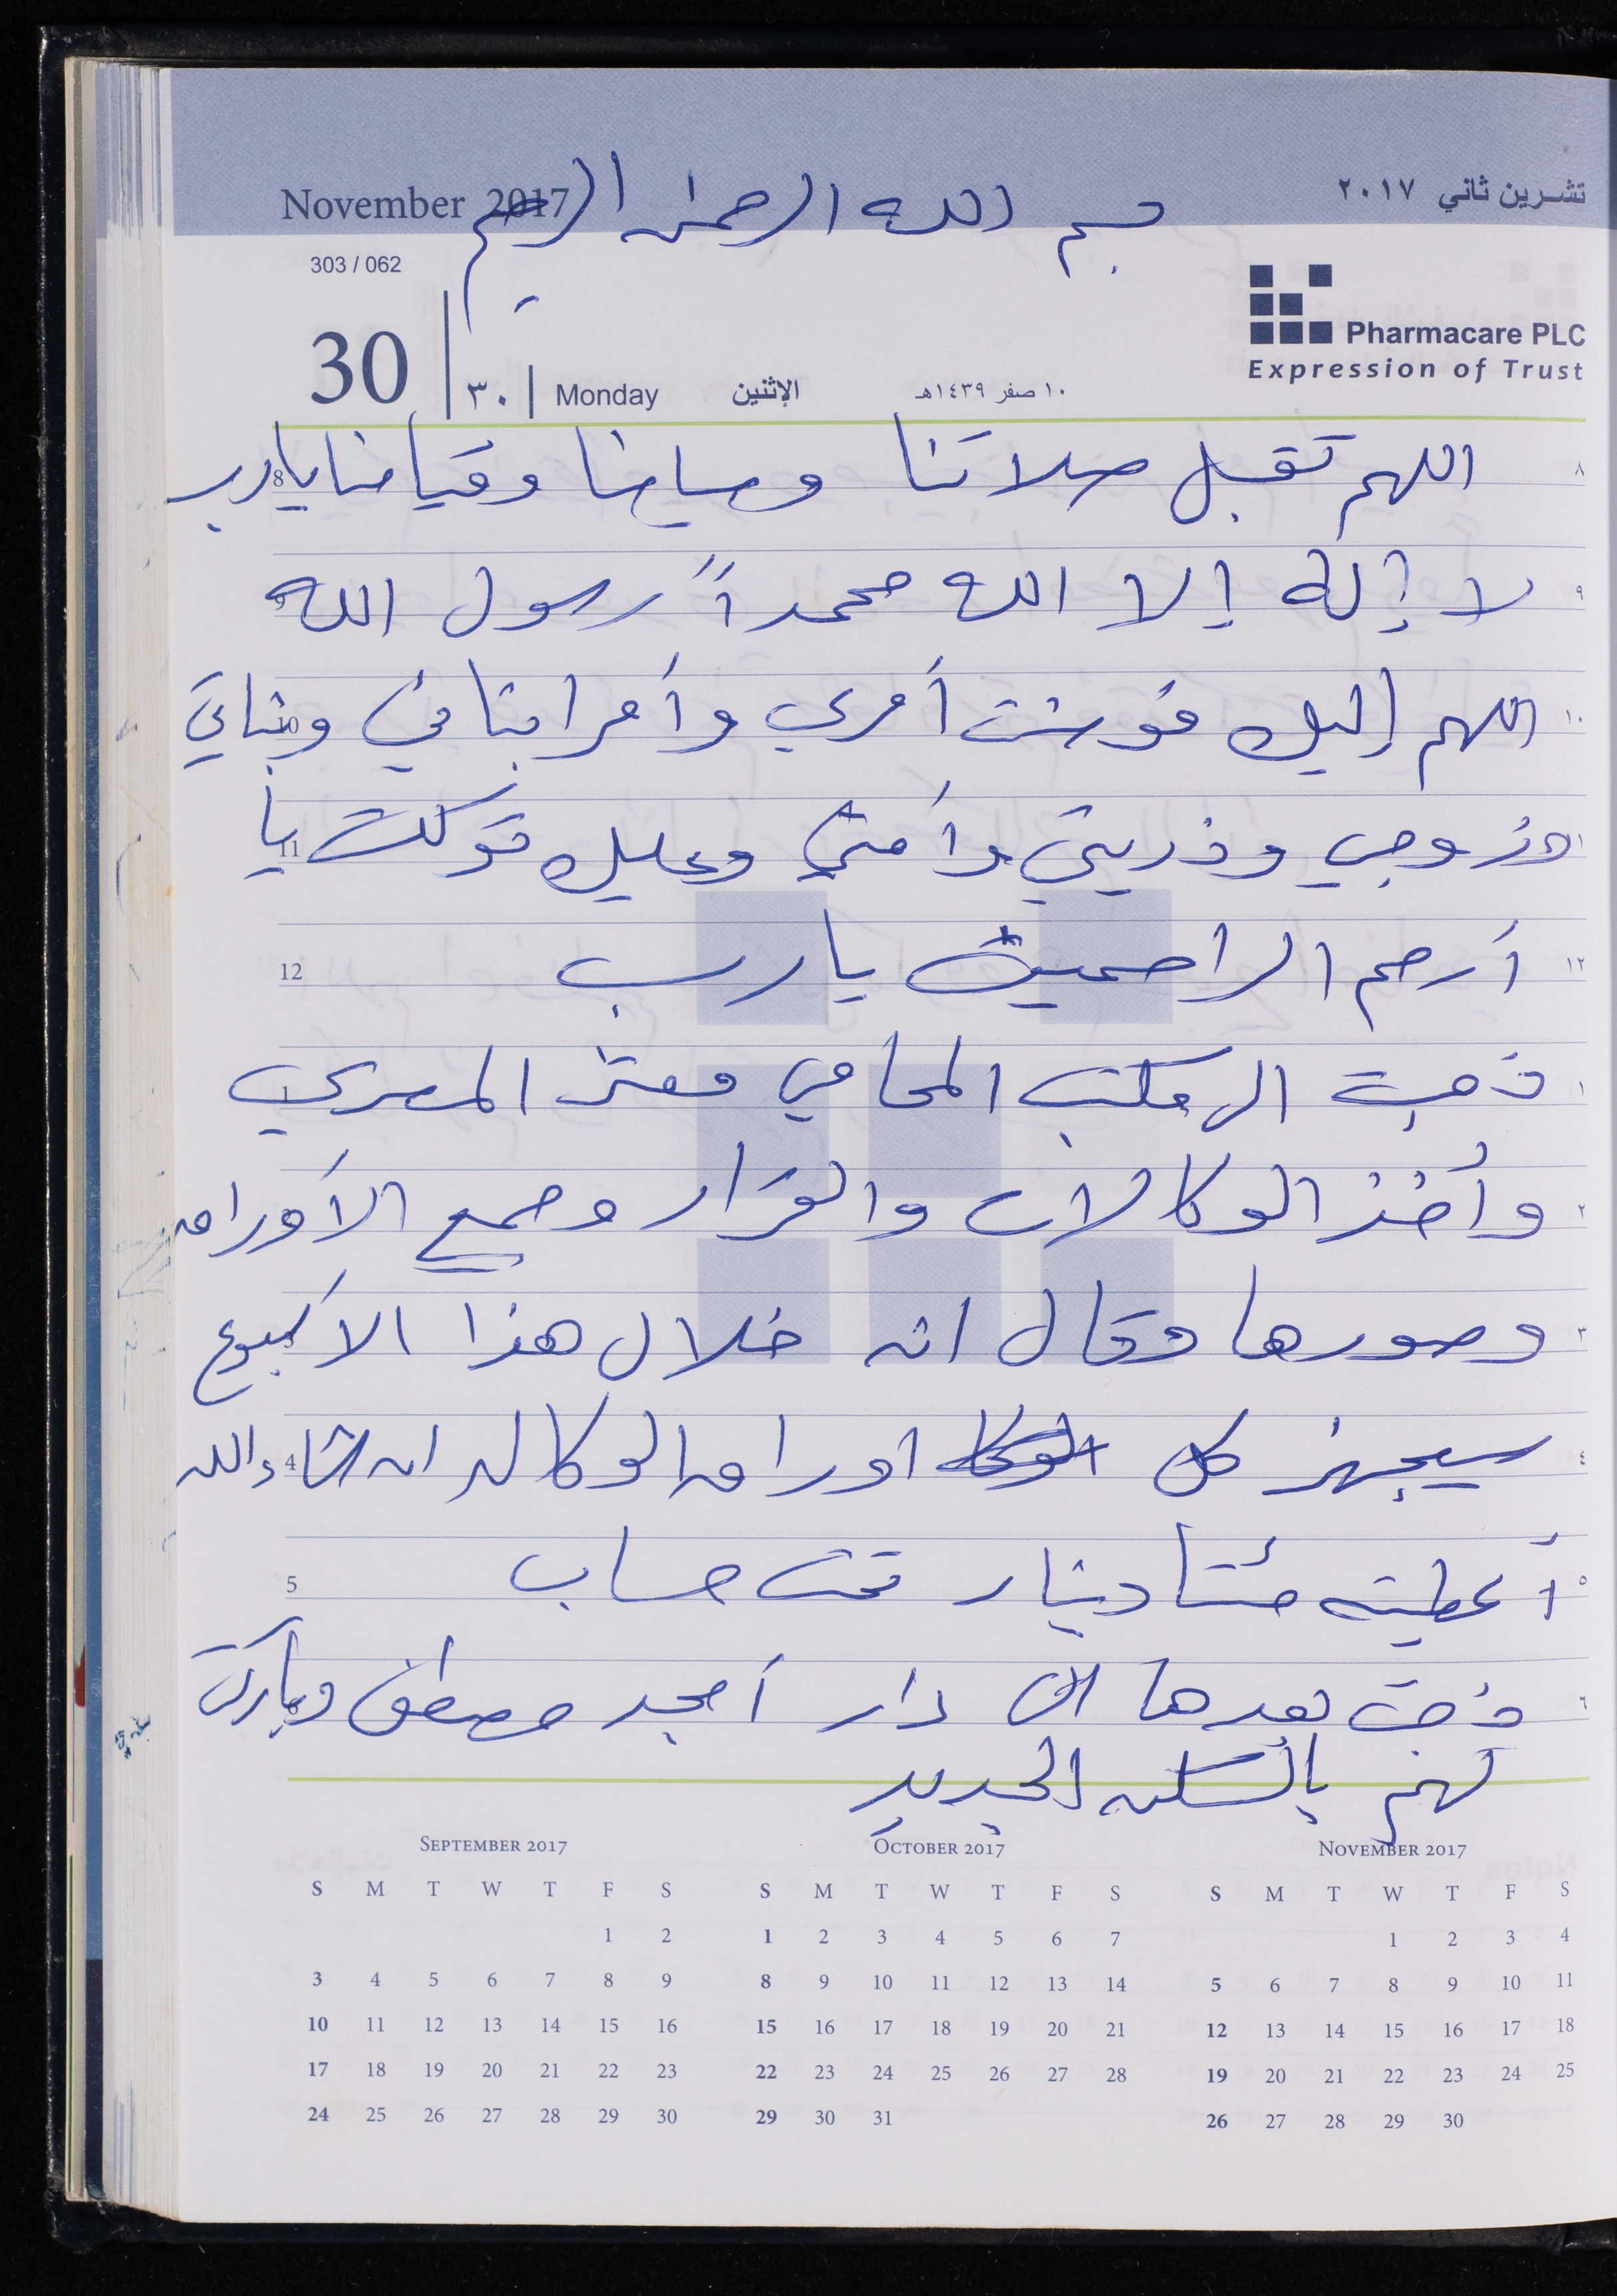 November 2017
تشرين ثاني ٢٠١٧
بسم الله الرحمن الرحيم
303 / 062
Pharmacare PLC
Expression of Trust
30 | ٣٠ | Monday الإثنين ١٠ صفر ١٤٣٩هـ
٨ اللهم تقبل صلاتنا وصيامنا وقيامنا يا رب 8
٩ لا إله إلا الله محمداً رسول الله 9
١٠ اللهم إليك فوضت أمري وأمر ابنائي وبناتي 10
١١ وزوجي وذريتي وأمتي وعليك توكلت يا 11
١٢ أرحم الراحمين يا رب 12
١ ذهبت الى مكتب المحامي معتز المصري 1
٢ وأخذ الوكالات والقرار وجميع الأوراق
٣ وصورها وقال انه خلال هذا الاسبوع
٤ سيجهز كل اوراق الوكاله ان شاء الله 4
٥ أعطيته مئتا دينار تحت حساب 5
٦ ذهبت بعدها الى دار أمجد مصطفى وباركت
لهم بالسكن الجديد
SEPTEMBER 2017
S M T W T F S
1 2
3 4 5 6 7 8 9
10 11 12 13 14 15 16
17 18 19 20 21 22 23
24 25 26 27 28 29 30
OCTOBER 2017
S M T W T F S
1 2 3 4 5 6 7
8 9 10 11 12 13 14
15 16 17 18 19 20 21
22 23 24 25 26 27 28
29 30 31
NOVEMBER 2017
S M T W T F S
1 2 3 4
5 6 7 8 9 10 11
12 13 14 15 16 17 18
19 20 21 22 23 24 25
26 27 28 29 30